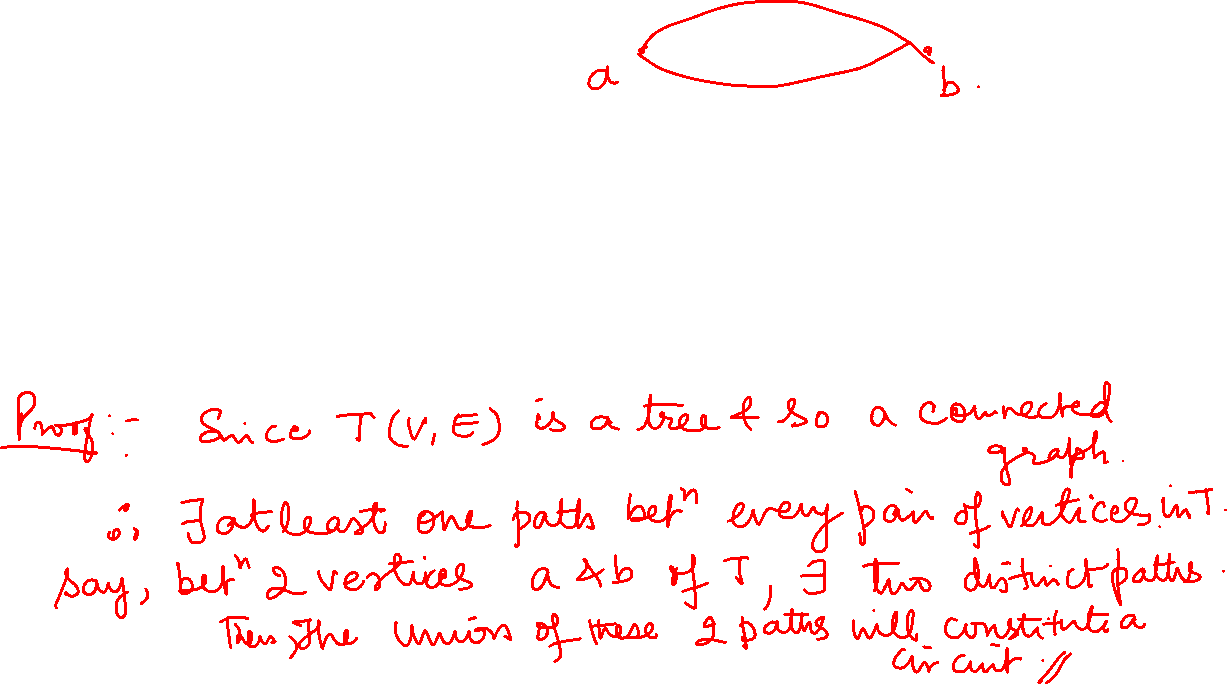 a b.
Proof:- Since T(V, E) is a tree & so a connected
graph.
∴ ∃ atleast one path betⁿ every pair of vertices in T.
say, betⁿ 2 vertices a & b of T, ∃ two distinct paths.
Then, the union of these 2 paths will constitute a
circuit. //